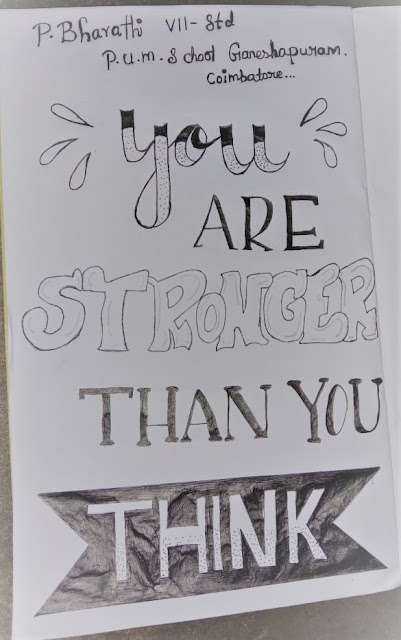 P. Bharathi VII- Std
P.U.M. School Ganeshapuram.
Coimbatore...
you
ARE
STRONGER
THAN YOU
THINK